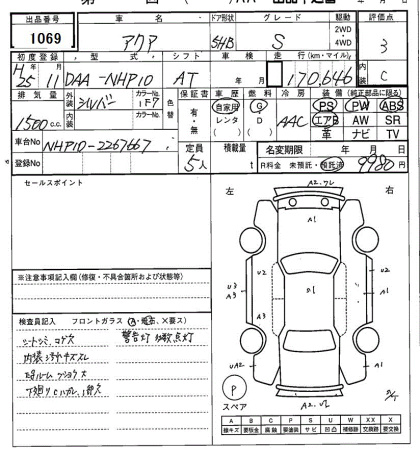 出品番号 車名 ドア形状 グレード 駆動 評価点
1069 アクア 5HB S 2WD・4WD 3
初度登録 型式 シフト 車検 走行(km・マイル) 内装
H25 11 DAA-NHP10 AT 年 月 170,646 C
排気量 外装 シルバー カラーNo. 1F7 色替 保証書 車歴 燃料 冷房 装備(純正部品に限る)
1500cc. 内装 カラーNo. 有・無 自家用 レンタ G D AAC PS PW ABS
エアB AW SR
革 ナビ TV
車台No NHP10-2267667 定員 積載量 名変期限 年 月 日
登録No 5人 t R料金 未預託・預託済 9980円
セールスポイント
左 右
A2
A1
U3 A3 U2 U2 A1
A3 A3
UA2 A1
スペア
A2
※注意事項記入欄(修復・不具合箇所および状態等)
検査員記入 フロントガラス (A・飛石、X要ス)
シートシミ、コゲ穴 警告灯 多数点灯
内装 汚れキズスレ
A B C P S U W XX X
線キズ 要板金 腐蝕 要塗装 サビ 凹凸 補修跡 交換跡 要交換